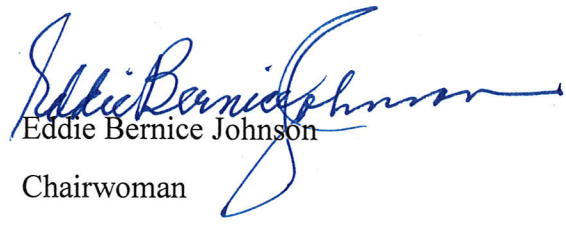 Eddie Bernice Johnson
Eddie Bernice Johnson
Chairwoman